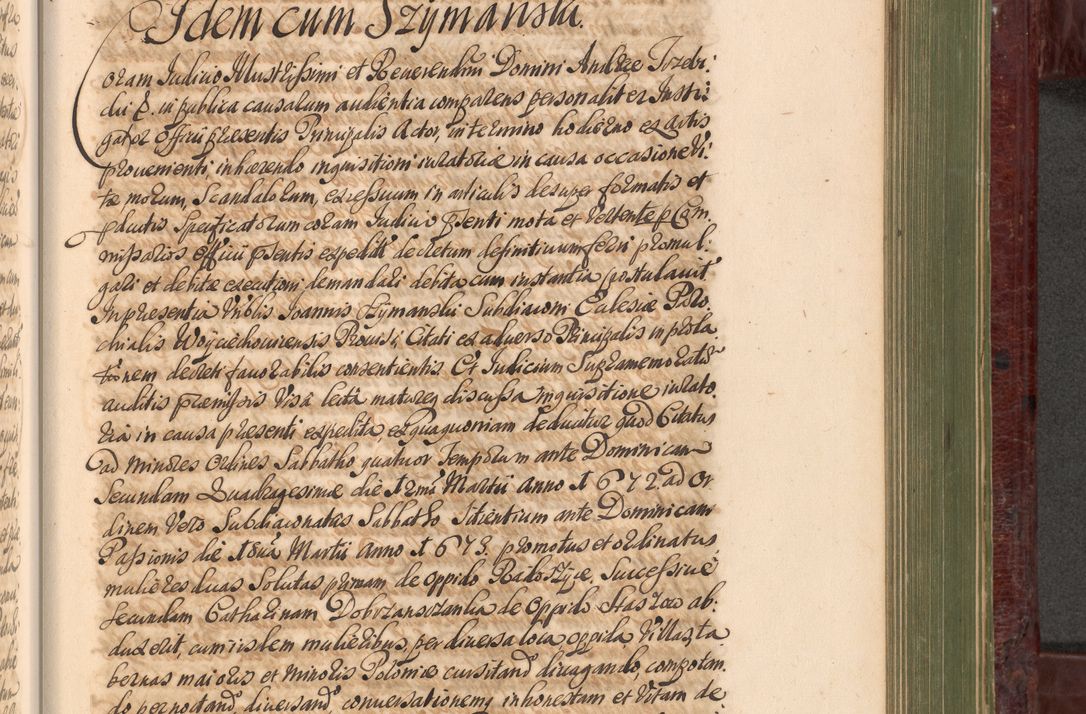 Idem cum Szymański.
Coram Iudicio Illustrissimi et Reuerendmi Domini Andree Trzebi:
cki E. in publica causarum audientia comparens personaliter Insti:
gator Officii presentis Principalis Actor, in termino hodierno ex actis
proueniēti, inhærendo inquisitioni iuratoriæ in causa occasione Vi:
tæ morum, Scandalorum, excessuum in articulis desuper formatis et
pductis Specificatorum coram Iudicio pśenti mota et Vertente p Com
missarios Officii pśentis expedit decretum definitiuum ferri promul:
gari et debitæ executioni demandari debita cum instantia postulauit
In presentia Vnblis Joannis Szymanski Subdiaconi Ecclesiæ Paro
chialis Woyciechouiensis Prouisi, Citati ex aduerso Principalis in prola
tionem decreti fauorabilis consentientis Et Iudicium Supramemoratū
auditis præmissis Visa lecta matureq discussa inquisitione iurato
ria in causa presenti expedita ex qua quoniam deducitur quod Citatus
ad minores Ordines Sabbatho quatuor Temporum ante Dominicam
Secundam Quadragesimæ die 12mā Martii Anno 1672 ad Or
dinem Vero Subdiaconatus Sabbatho Sitientium ante Dominicam
Passionis die 18uā Martii Anno 1673. promotus et ordinatus
mulieres duas Solutas primam de oppido Radoszyce, Successiuè
secundam Catharinam Dobrzanszanka de Oppido Staszow ab:
duxerit, cum iisdem mulieribus, per diuersa loca, oppida, Villas, ta
bernas maioris et minoris Poloniæ cursitand diuagando, compotan
do pernoctand, diuersand, conuersationemq inhonestam et Vitam de